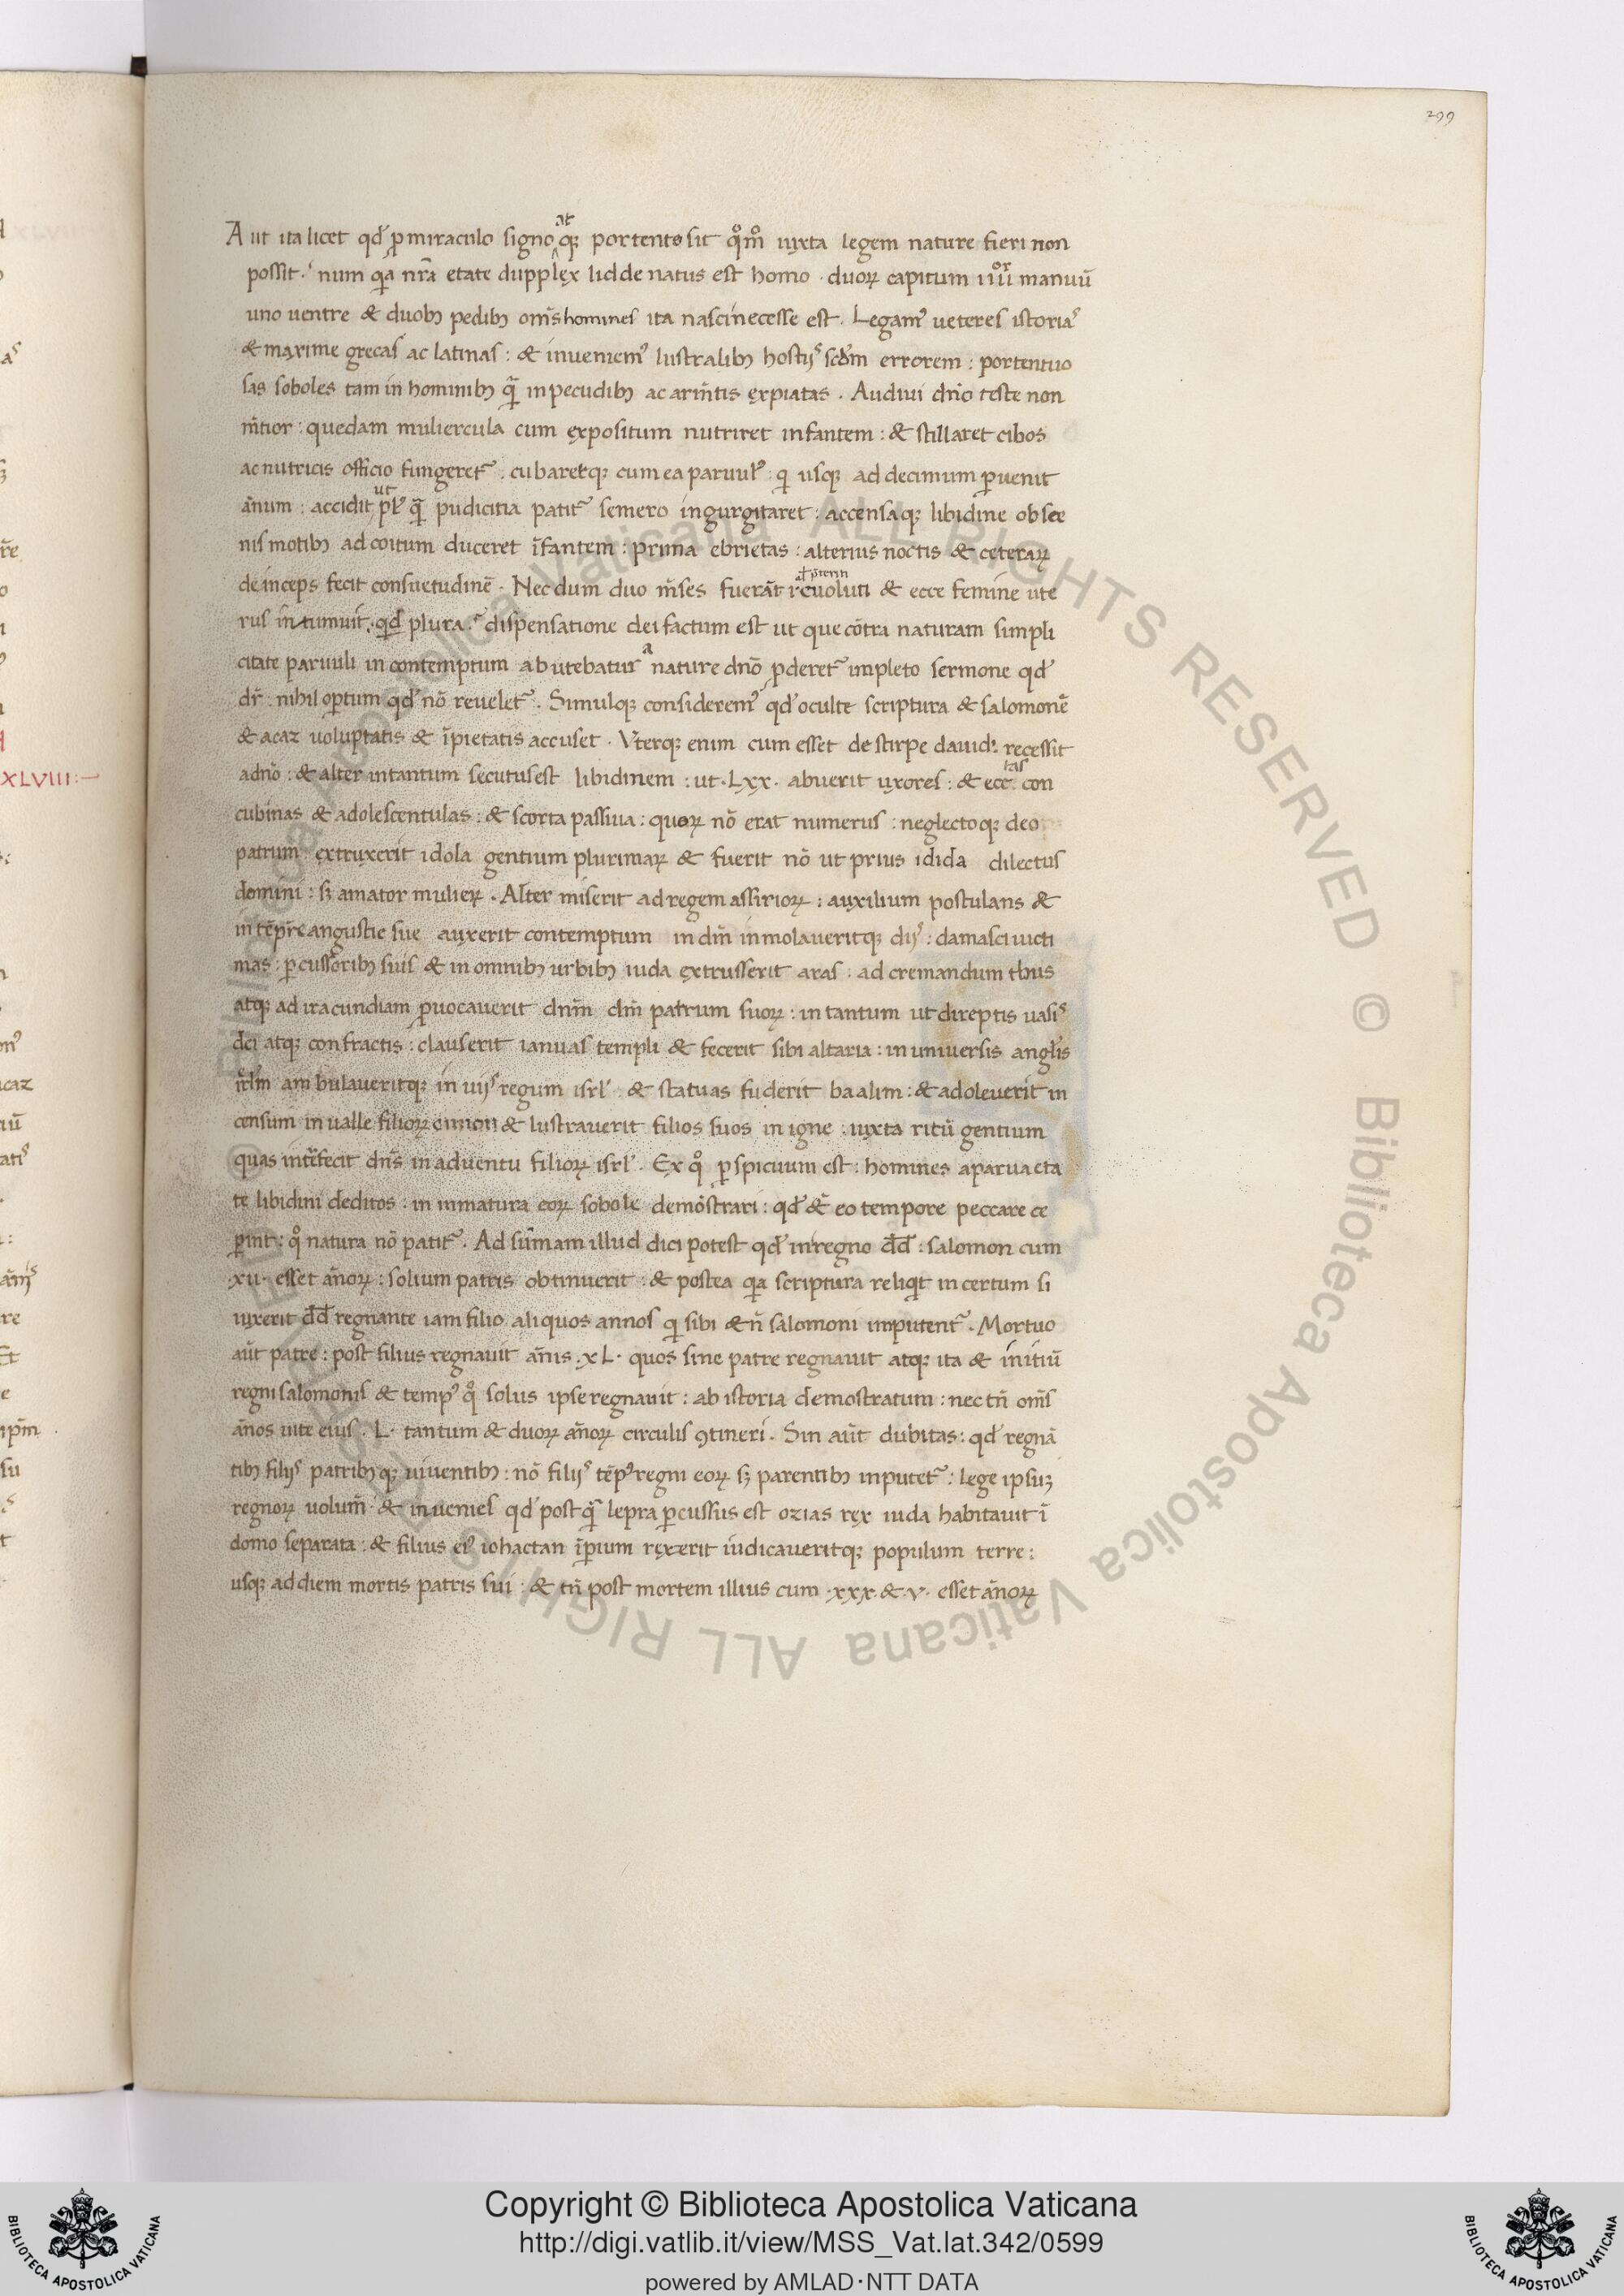 299
Aut ita licet qd̛ p̱ miraculo signo atq; portento sit qͦm̊ iuxta legem nature fieri non
possit. num qa nr̄a etate dupplęx lidde natus est homo. duoꝝ capitum iiuor̄ manuū
uno ventre & duob; pedib; om̄s homines ita nasci necesse est. Legam᾽ veteres istorias
& maxime grecas ac latinas: & inveniem᾽ lustralib; hostijs scd̄m errorem: portentuo
sas soboles tam in hominib; quā in pecudib; ac arm̄tis expiatas. Audivi dn̄o teste non
m̄tior: quedam muliercula cum expositum nutriret infantem: & stillaret cibos
ac nutricis officio fungeret᾽. cubaretq; cum ea parvul᾽: qi usq; ad decimum ꝑvenit
ān̄um: accidit ut pl᾽ qā pudicitia patit᾽ semero ingurgitaret: accensaq; libidine obsce
nis motib; ad coitum duceret īfantem: prima ebrietas: alterius noctis & ceteraꝝ
deinceps fecit consuetudinē. Nec dum duo m̄ses fuerāt revoluti & ecce femine ute
rus intumuit. qd̛ plura. dispensatione dei factum est ut que cōtra naturam simpli
citate parvuli in contemptum abutebatur a nature dn̄o ꝓderet᾽ impleto sermone qd̛
dr̄. nihil oꝑtum qd̛ nō revelet᾽. Simulq; considerem᾽ qd̛ oculte scriptura & salomonē
& acaz voluptatis & īpietatis accuset. Vterq; enim cum esset de stirpe david. recessit
a dn̄o: & alter in tantum secutus est libidinem: ut. Lxx. abuerit uxores: & ccc.tas con
cubinas & adolescentulas: & scorta passiva: quoꝝ nō erat numerus: neglectoq; deo
patrum extruxerit idola gentium plurimaꝝ & fuerit nō ut prius idida dilectus
domini: s; amator mulieꝝ. Alter miserit ad regem assirioꝝ: auxilium postulans &
in tēpr̄e angustie sue auxerit contemptum in dm̄ inmolaveritq; dijs: damasci victi
mas: ꝑcussorib; suis & in omnib; urbib; iuda extrusserit aras: ad cremandum thus
atq; ad iracundiam ꝓvocaverit dn̄m dm̄ patrum suoꝝ: in tantum ut direptis vasis
dei atq; confractis: clauserit ianuas templi & fecerit sibi altaria: in universis angl̄is
ir̄lm ambulaveritq; in vijs regum isrl᾽. & statuas fuderit baalim: & adoleverit in
censum in valle filioꝝ ennon & lustraverit filios suos in igne: iuxta ritū gentium
quas int̄fecit dn̄s in adventu filioꝝ isrl᾽. Ex qͦ ꝑspicuum est: homines a parva eta
te libidini deditos: in inmatura eoꝝ sobole demōstrari: qd̛ & eo tempore peccare ce
ꝑint: qͦ natura nō patit᾽. Ad sūmam illud dici potest qd̛ in regno dd̄: salomon cum
.xii. esset an̄oꝝ: solium patris obtinuerit: & postea qa scriptura reliqit incertum si
vixerit dd̄ regnante iam filio aliquos annos qi sibi & n̄ salomoni imputent᾽. Mortuo
aūt patre: post filius regnavit an̄is. xL. quos sine patre regnavit atq; ita & initiū
regni salomonis & temp᾽ qͦ solus ipse regnavit: ab istoria demostratum: nec tn̄ om̄s
an̄os vite eius. L. tantum & duoꝝ an̄oꝝ circulis ꝯtineri. Sin aūt dubitas: qd̛ regnā
tib; filijs patribq; viventib;: nō filijs tēp᾽ regni eoꝝ s; parentib; inputet᾽: lege ipsuꝫ
regnoꝝ volum̄ & invenies qd̛ postqā lepra ꝑcussus est ozias rex iuda habitavit ī
domo separata: & filius ei᾽ iohactan īperium rexerit iudicaveritq; populum terre:
usq; ad diem mortis patris sui: & tn̄ post mortem illius cum .xxx.&.v. esset an̄oꝝ
XLVIII:
Copyright © Biblioteca Apostolica Vaticana
http://digi.vatlib.it/view/MSS_Vat.lat.342/0599
powered by AMLAD·NTT DATA
BIBLIOTECA APOSTOLICA VATICANA
BIBLIOTECA APOSTOLICA VATICANA